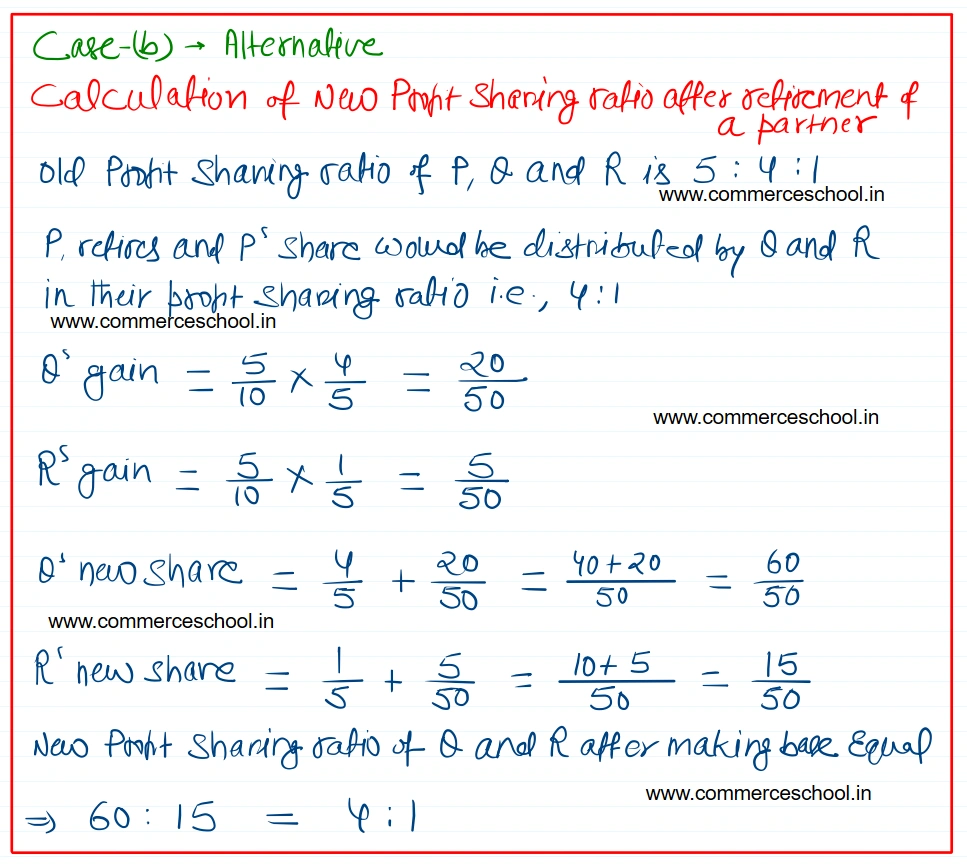 Case-(b) → Alternative
Calculation of New Profit Sharing ratio after retirement of
a partner
Old Profit Sharing ratio of P, Q and R is 5 : 4 : 1
www.commerceschool.in
P, retires and P's share would be distributed by Q and R
in their profit sharing ratio i.e., 4:1
www.commerceschool.in
Q's gain = 5/10 × 4/5 = 20/50
www.commerceschool.in
R's gain = 5/10 × 1/5 = 5/50
Q's new share = 4/5 + 20/50 = 40+20/50 = 60/50
www.commerceschool.in
R's new share = 1/5 + 5/50 = 10+5/50 = 15/50
New Profit Sharing ratio of Q and R after making base Equal
www.commerceschool.in
⇒ 60 : 15 = 4 : 1